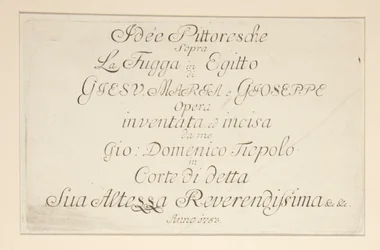 Idée Pittoresche
Sopra
La Fugga in Egitto
di
GIESV, MARIA e GIOSEPPE
Opera
inventata, e incisa
da me
Gio: Domenico Tiepolo
in
Corte di detta
Sua Altezza Reverendissima &c. &c.
Anno 1753.